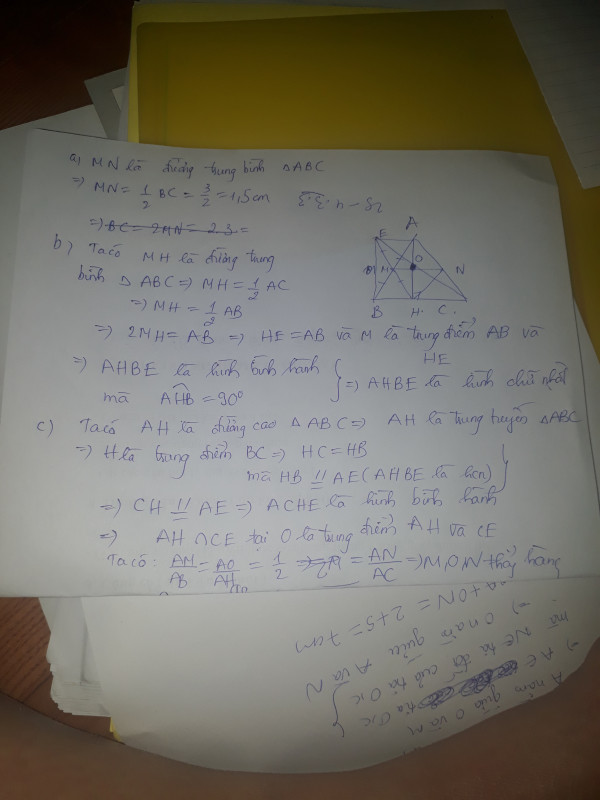 a) MN là đường trung bình △ABC
=> MN = 1/2 BC = 3/2 = 1,5cm
=> BC = 2MN = 2.3 =
b) Ta có MH là đường trung
bình △ ABC => MH = 1/2 AC
=> MH = 1/2 AB
=> 2MH = AB => HE = AB và M là trung điểm AB và
HE
=> AHBE là hình bình hành
mà AHB = 90° } => AHBE là hình chữ nhật
c) Ta có AH là đường cao △ABC => AH là trung tuyến △ABC
=> H là trung điểm BC => HC = HB
mà HB // = AE (AHBE là hcn) }
=> CH // = AE => ACHE là hình bình hành
=> AH ∩ CE tại O là trung điểm AH và CE
Ta có: AM/AB = AO/AH = 1/2 = AN/AC => M, O, N thẳng hàng
E
A
O
M
N
B
H
C
+ ON = 2 + 5 = 7cm
=> O nằm giữa A và N
mà
tia đối của tia Ox
=> A
tia Ox
A nằm giữa O và M